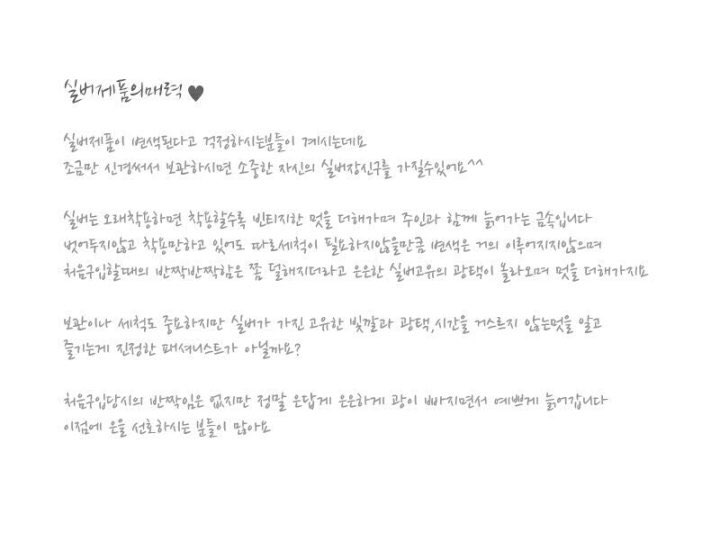 실버제품의매력 ♥
실버제품이 변색된다고 걱정하시는분들이 계시는데요
조금만 신경써서 보관하시면 소중한 자신의 실버장신구를 가질수있어요^^
실버는 오래착용하면 착용할수록 빈티지한 멋을 더해가며 주인과 함께 늙어가는 금속입니다
벗어두지않고 착용만하고 있어도 따로세척이 필요하지않을만큼 변색은 거의 이루어지지않으며
처음구입할때의 반짝반짝함은 쫌 덜해지더라고 은은한 실버고유의 광택이 올라오며 멋을 더해가지요
보관이나 세척도 중요하지만 실버가 가진 고유한 빛깔과 광택,시간을 거스르지 않는멋을 알고
즐기는게 진정한 패셔니스트가 아닐까요?
처음구입당시의 반짝임은 없지만 정말 은답게 은은하게 광이 빠지면서 예쁘게 늙어갑니다
이점에 은을 선호하시는 분들이 많아요